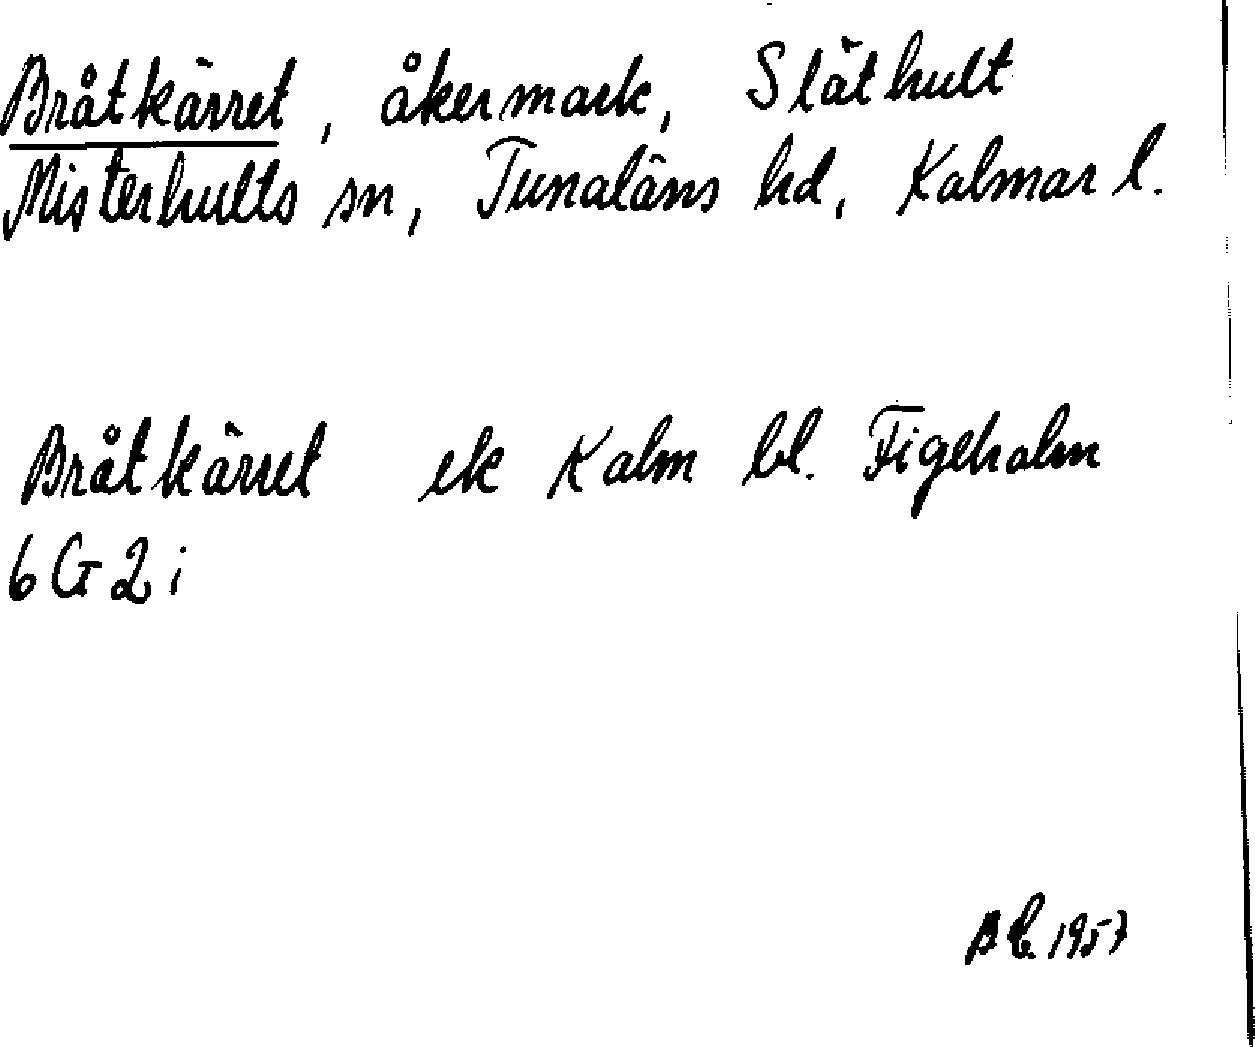 Bråtkärret, åkermark, Släthult
Misterhults sn, Tunaläns hd, Kalmar l.
Bråtkärret ek Kalm bl. Figeholm
6G2i
1957